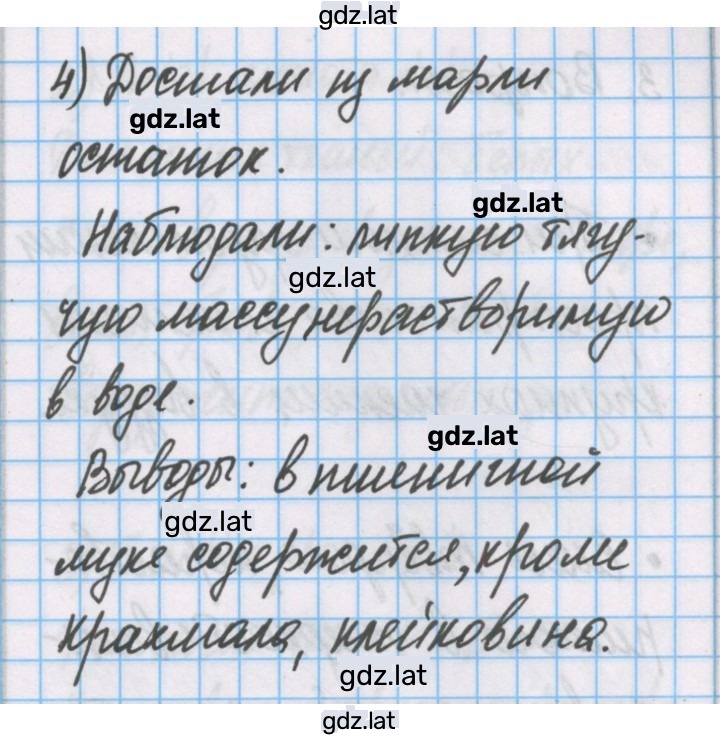 gdz.lat
4) Достали из марли
gdz.lat
остаток.
gdz.lat
Наблюдали: липкую тягу-
gdz.lat
чую массу нерастворимую
в воде.
gdz.lat
Выводы: в пшеничной
gdz.lat
муке содержится, кроме
крахмала, клейковина.
gdz.lat
gdz.lat